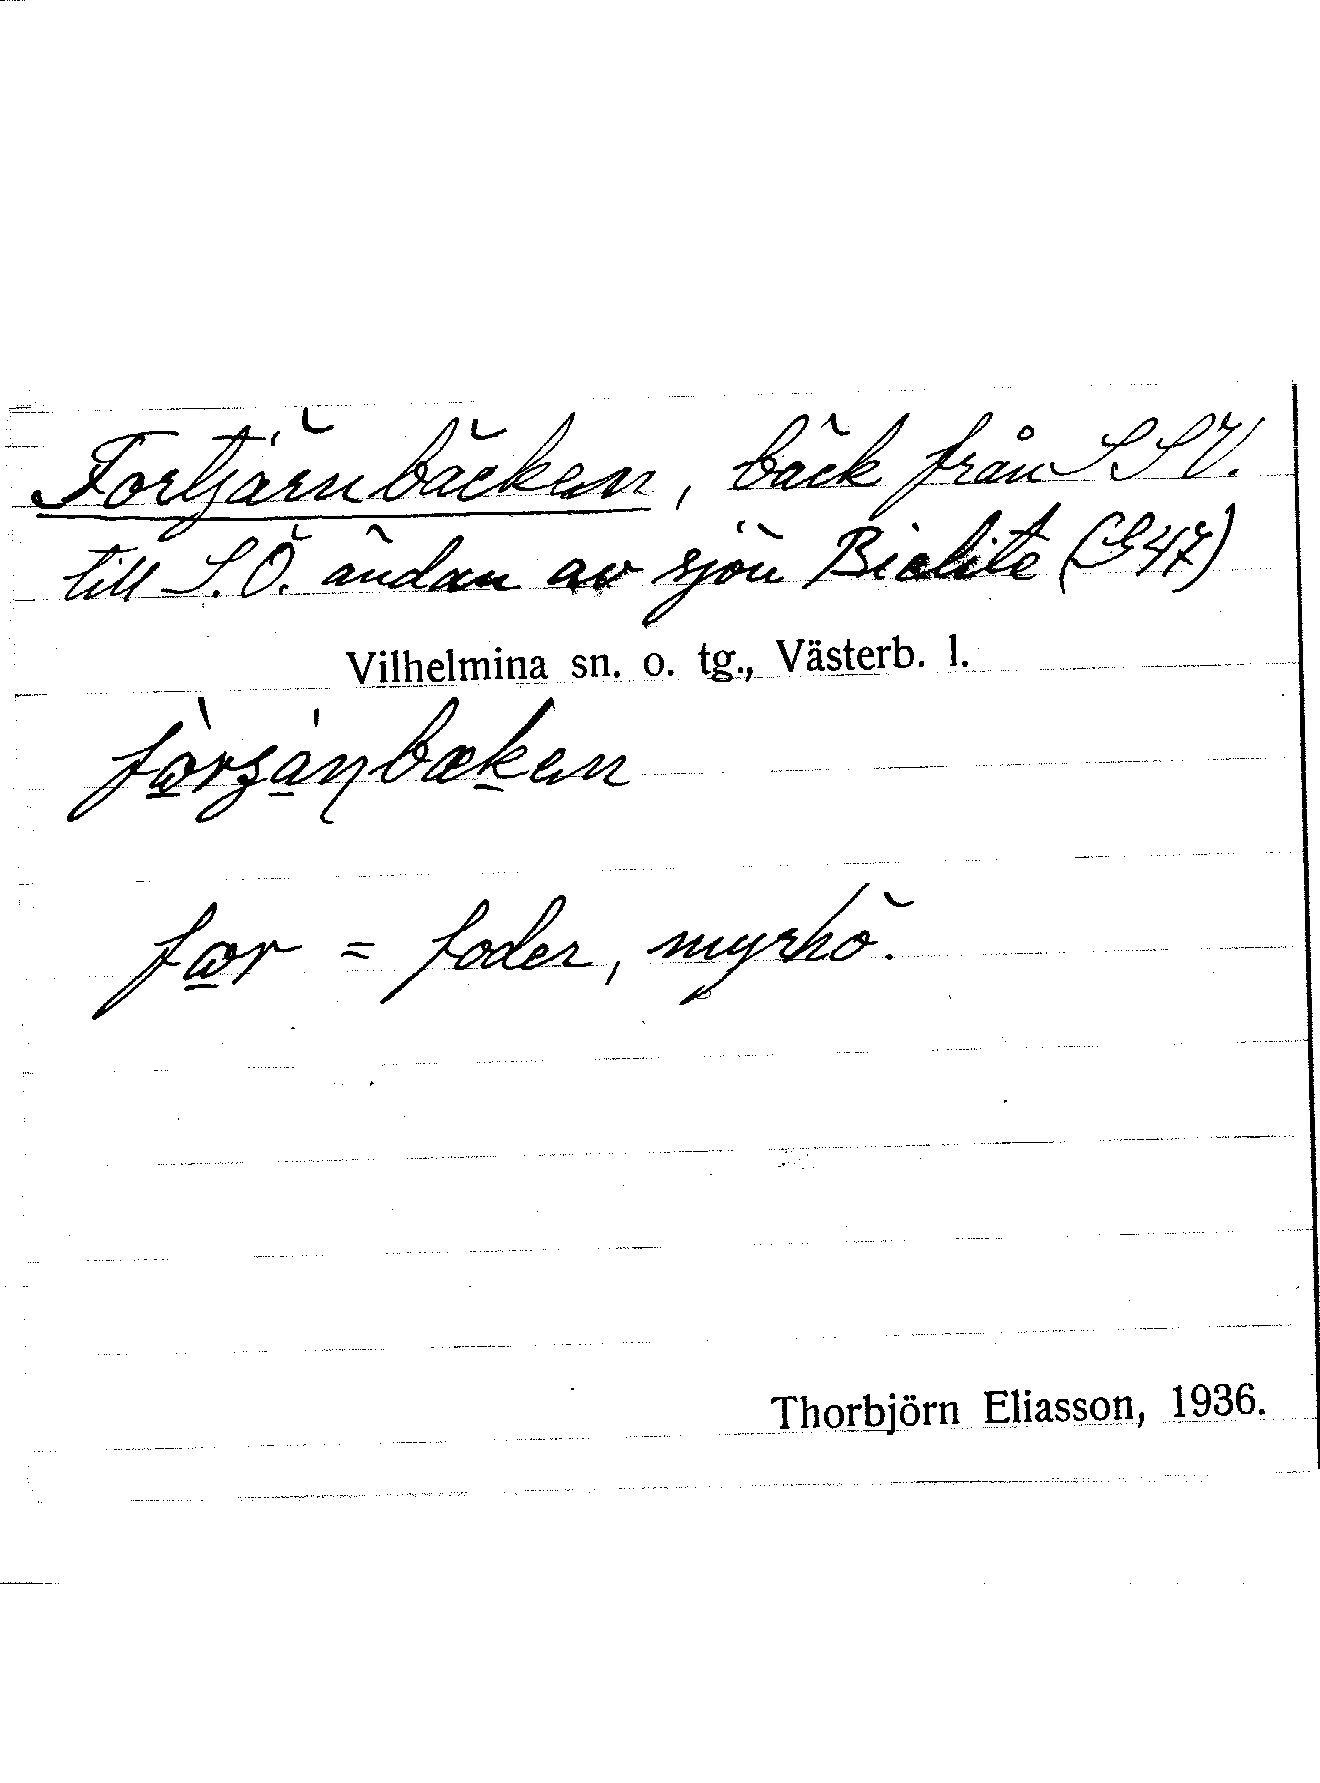 Fortjärnbäcken, bäck från S S V.
till S.Ö. ändan av sjön Bielite (G47)
Vilhelmina sn. o. tg., Västerb. l.
fo = foder, myrhö.
Thorbjörn Eliasson, 1936.